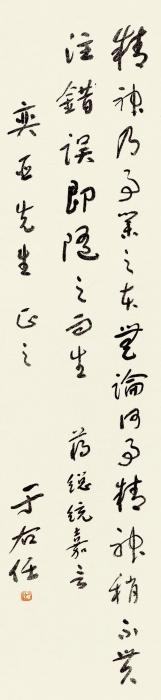 精神乃事業之本無論何事精神稍不貫
注錯誤即隨之而生 蔣總統嘉言
奕正先生正之
于右任